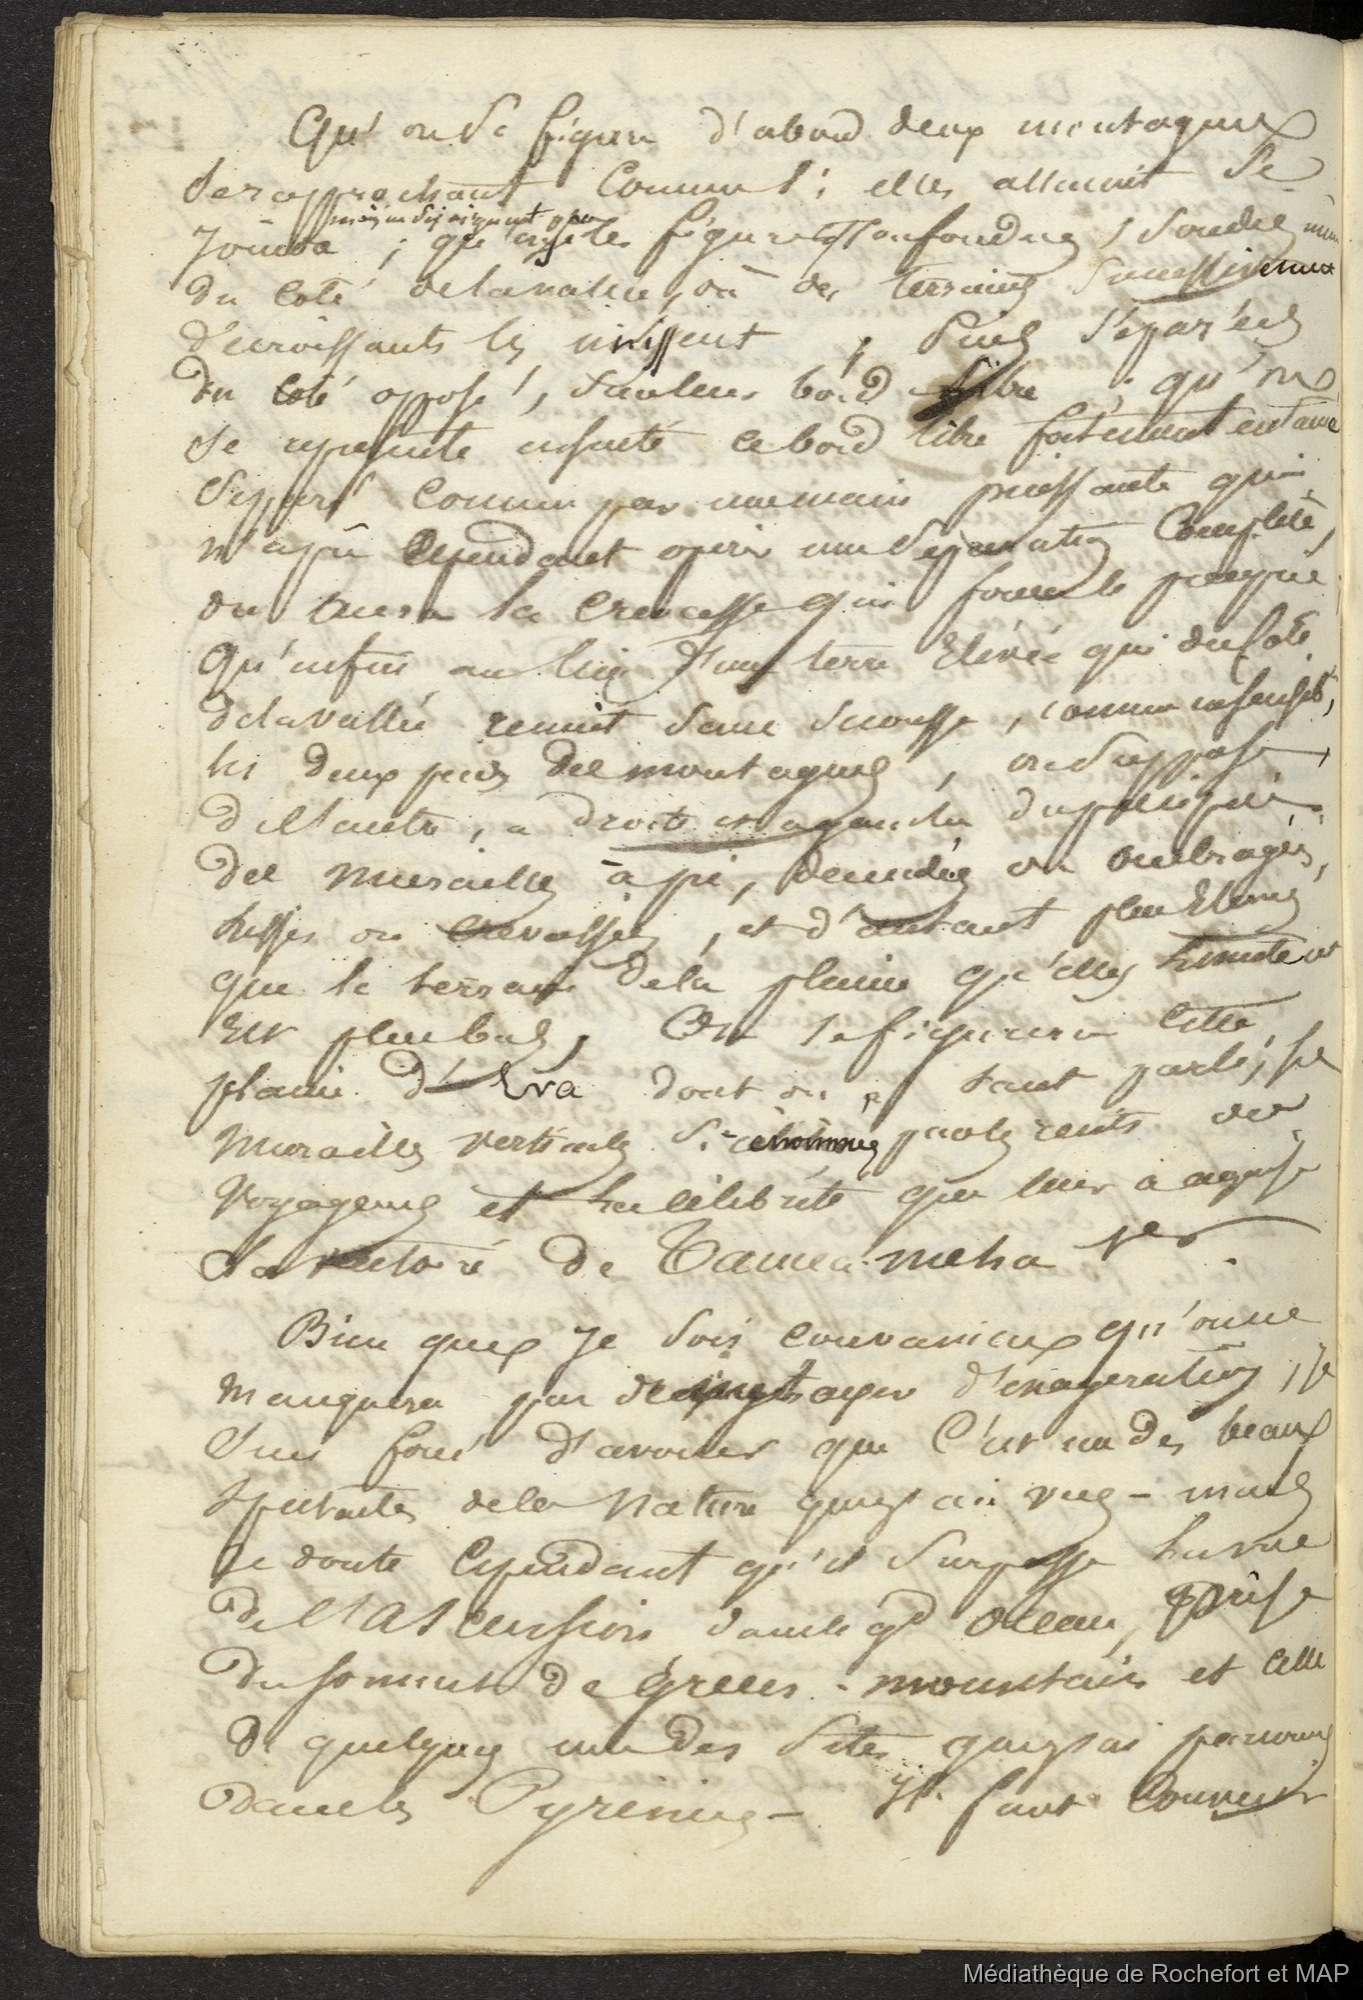 Qu'on se figure d'abord deux montagnes
se rapprochant comme si elles allaient se
joindre ; qu'on se les figure confondues, soudées même
du coté de la vallée, où des terrains successivement
décroissants les unissent ; puis séparées
du coté opposé, dans leur bord libre ; qu'on
se represente ensuite ce bord libre fortement entamé
séparé comme par une main puissante qui
n'a pu cependant operer une separation complète,
on aura la crevasse qui forme le
qu'enfin au lieu d'une terre élevée qui du coté
de la vallée reunit sans secousse, comme insensible,
les deux pieds des montagnes, on suppose,
de l'autre, a droite et a gauche du précipice
des murailles à pic, denudées ou ombragées,
lisses ou crevassées, et d'autant plus élevées
que le terrain de la plaine qu'elles limitent
est plus bas, On se figurera cette
plaine d'Eva dont on a tant parlé, ses
murailles verticales si renommées par les recits des
voyageurs et la célébrité que leur a acquise
la victoire de Tamea-meha 1er.
Bien que je sois convaincu qu'on ne
manquera pas de me taxer d'exageration, je
suis forcé d'avouer que c'est un des beaux
spectacles de la nature que j'ai vus - mais
je doute cependant qu'il surpasse la vue
de l'Ascension dans le gd océan, prise
du sommet de Green-mountain et celle
de quelques uns des sites que j'ai parcourus
dans les Pyrénées - Il faut convenir